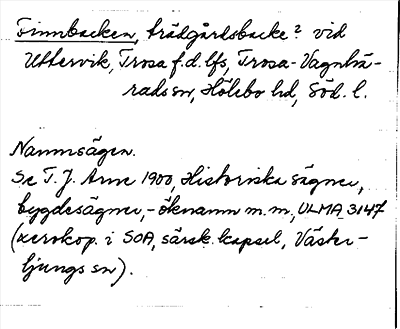 Finnbacken, trädgårdsbacke? vid
Uttervik, Trosa f.d. lfs, Trosa-Vagnhä-
rads sn, Hölebo hd, Söd. l.
Namnsägen.
Se T. J. Arne 1900, Historiska sägner,
bygdesägner, - öknamn m.m., ULMA 3147
(xerokop. i SOA, särsk. kapsel, Väster-
ljungs sn).